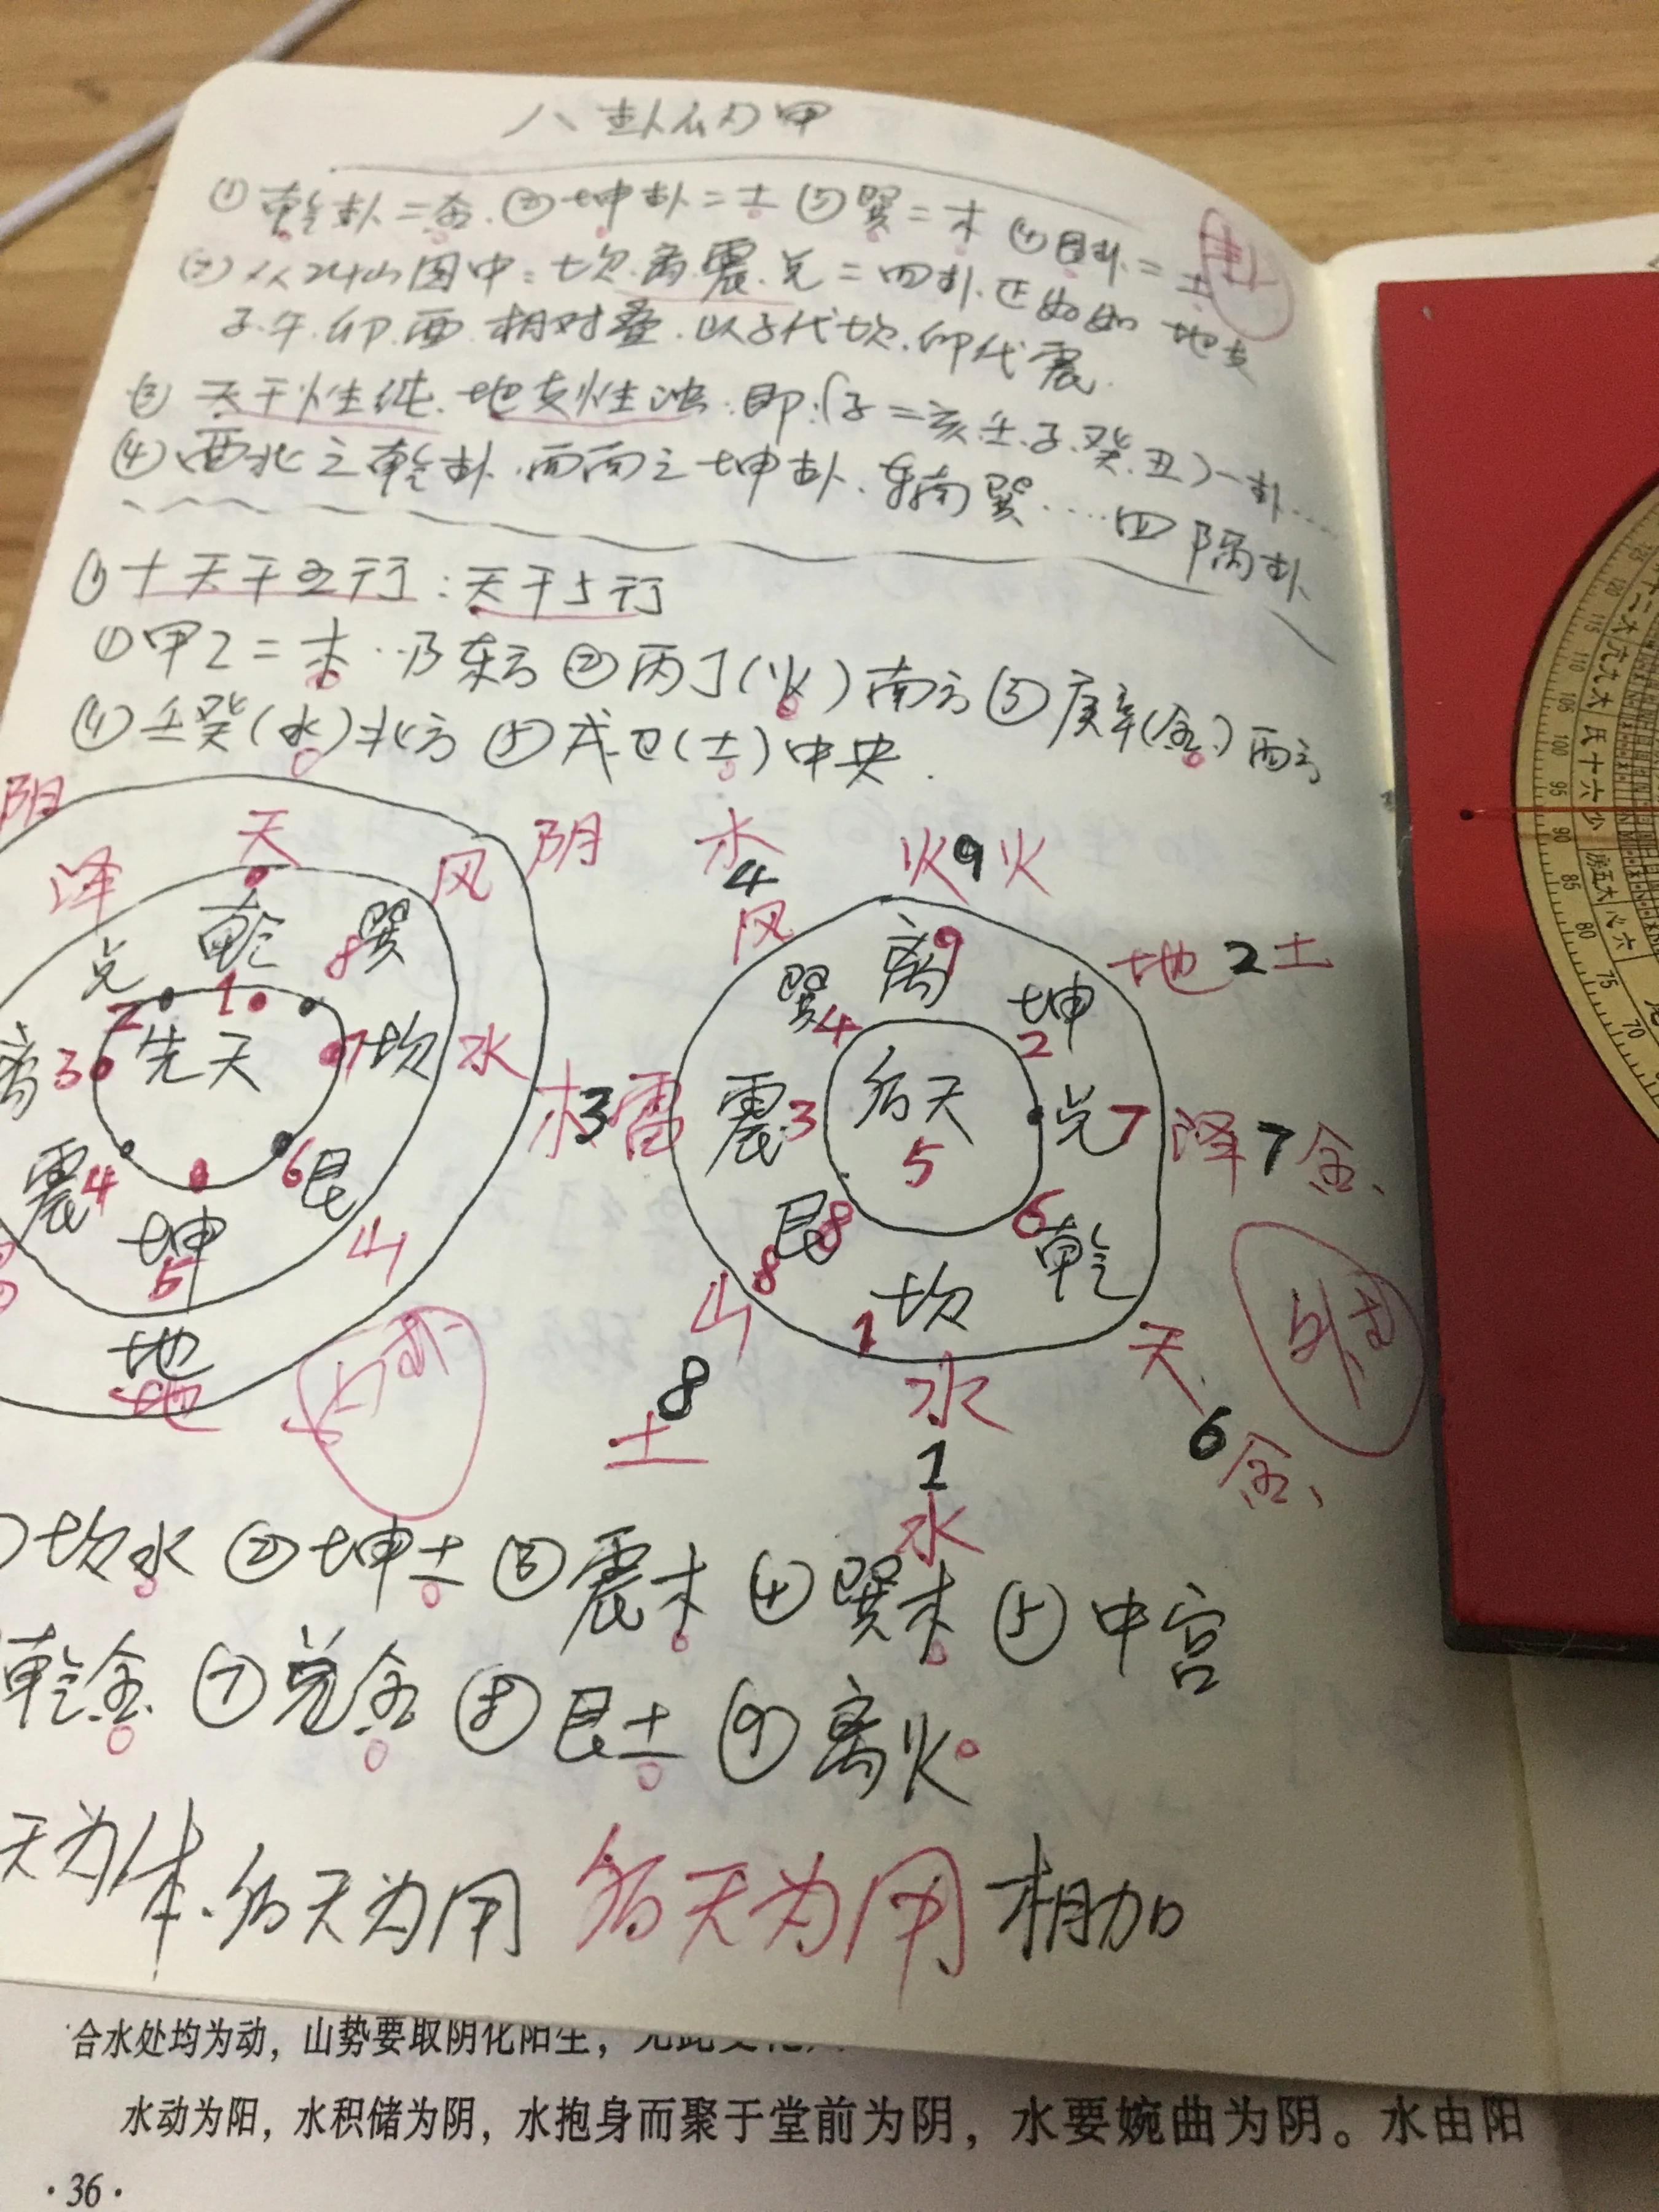 八卦纳甲
① 乾卦=金.②坤卦=土③巽=木④艮卦=土
② 从24山图中:坎.离.震.兑=四卦.正如 地支
子.午.卯.酉.相对叠.以子代坎.卯代震.
③ 天干性纯.地支性浊.即:(子=亥.壬.子.癸.丑)一卦……
④西北之乾卦.西南之坤卦.东南巽……四隅卦
① 十天干五行:天干5行
①甲乙=木..乃东方②丙丁(火)南方③庚辛(金)西方
④壬癸(水)北方⑤戊己(土)中央.
阳
天
泽
风
阴
乾
兑
巽
8
2
1
先天
离
3
7
坎
水
震
4
6
艮
山
坤
5
地
地
木
4
风
火9火
离
9
巽
4
坤
2
地2土
木3雷
震
3
后天
5
兑
7
泽7金
艮
8
8
山
8
土
坎
1
水
1
水
6
乾
天
6
金
坎水②坤土③震木④巽木⑤中宫
乾金⑦兑金⑧艮土⑨离火
天为体.后天为用 后天为用 相加
合水处均为动，山势要取阴化阳生，
水动为阳，水积储为阴，水抱身而聚于堂前为阴，水要婉曲为阴。水由阳
·36·
120
115
110
105
100
95
90
85
80
75
70
氐十六少
房五太
心六